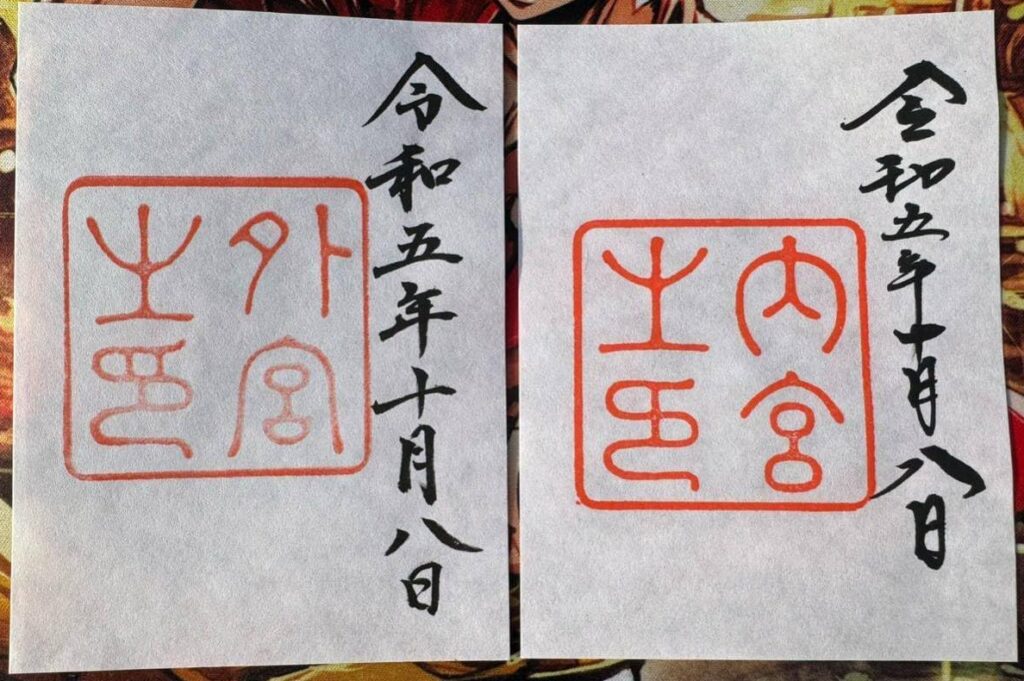 令和五年十月八日
外宮
之印
令和五年十月八日
内宮
之印